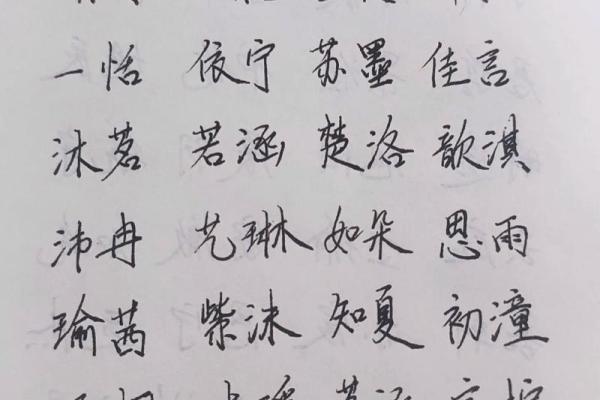 一恬 依宁 苏墨 佳言
沐茗 若涵 楚洛 歆淇
沛冉 艺琳 如朵 思雨
瑜茜 紫沫 知夏 初潼